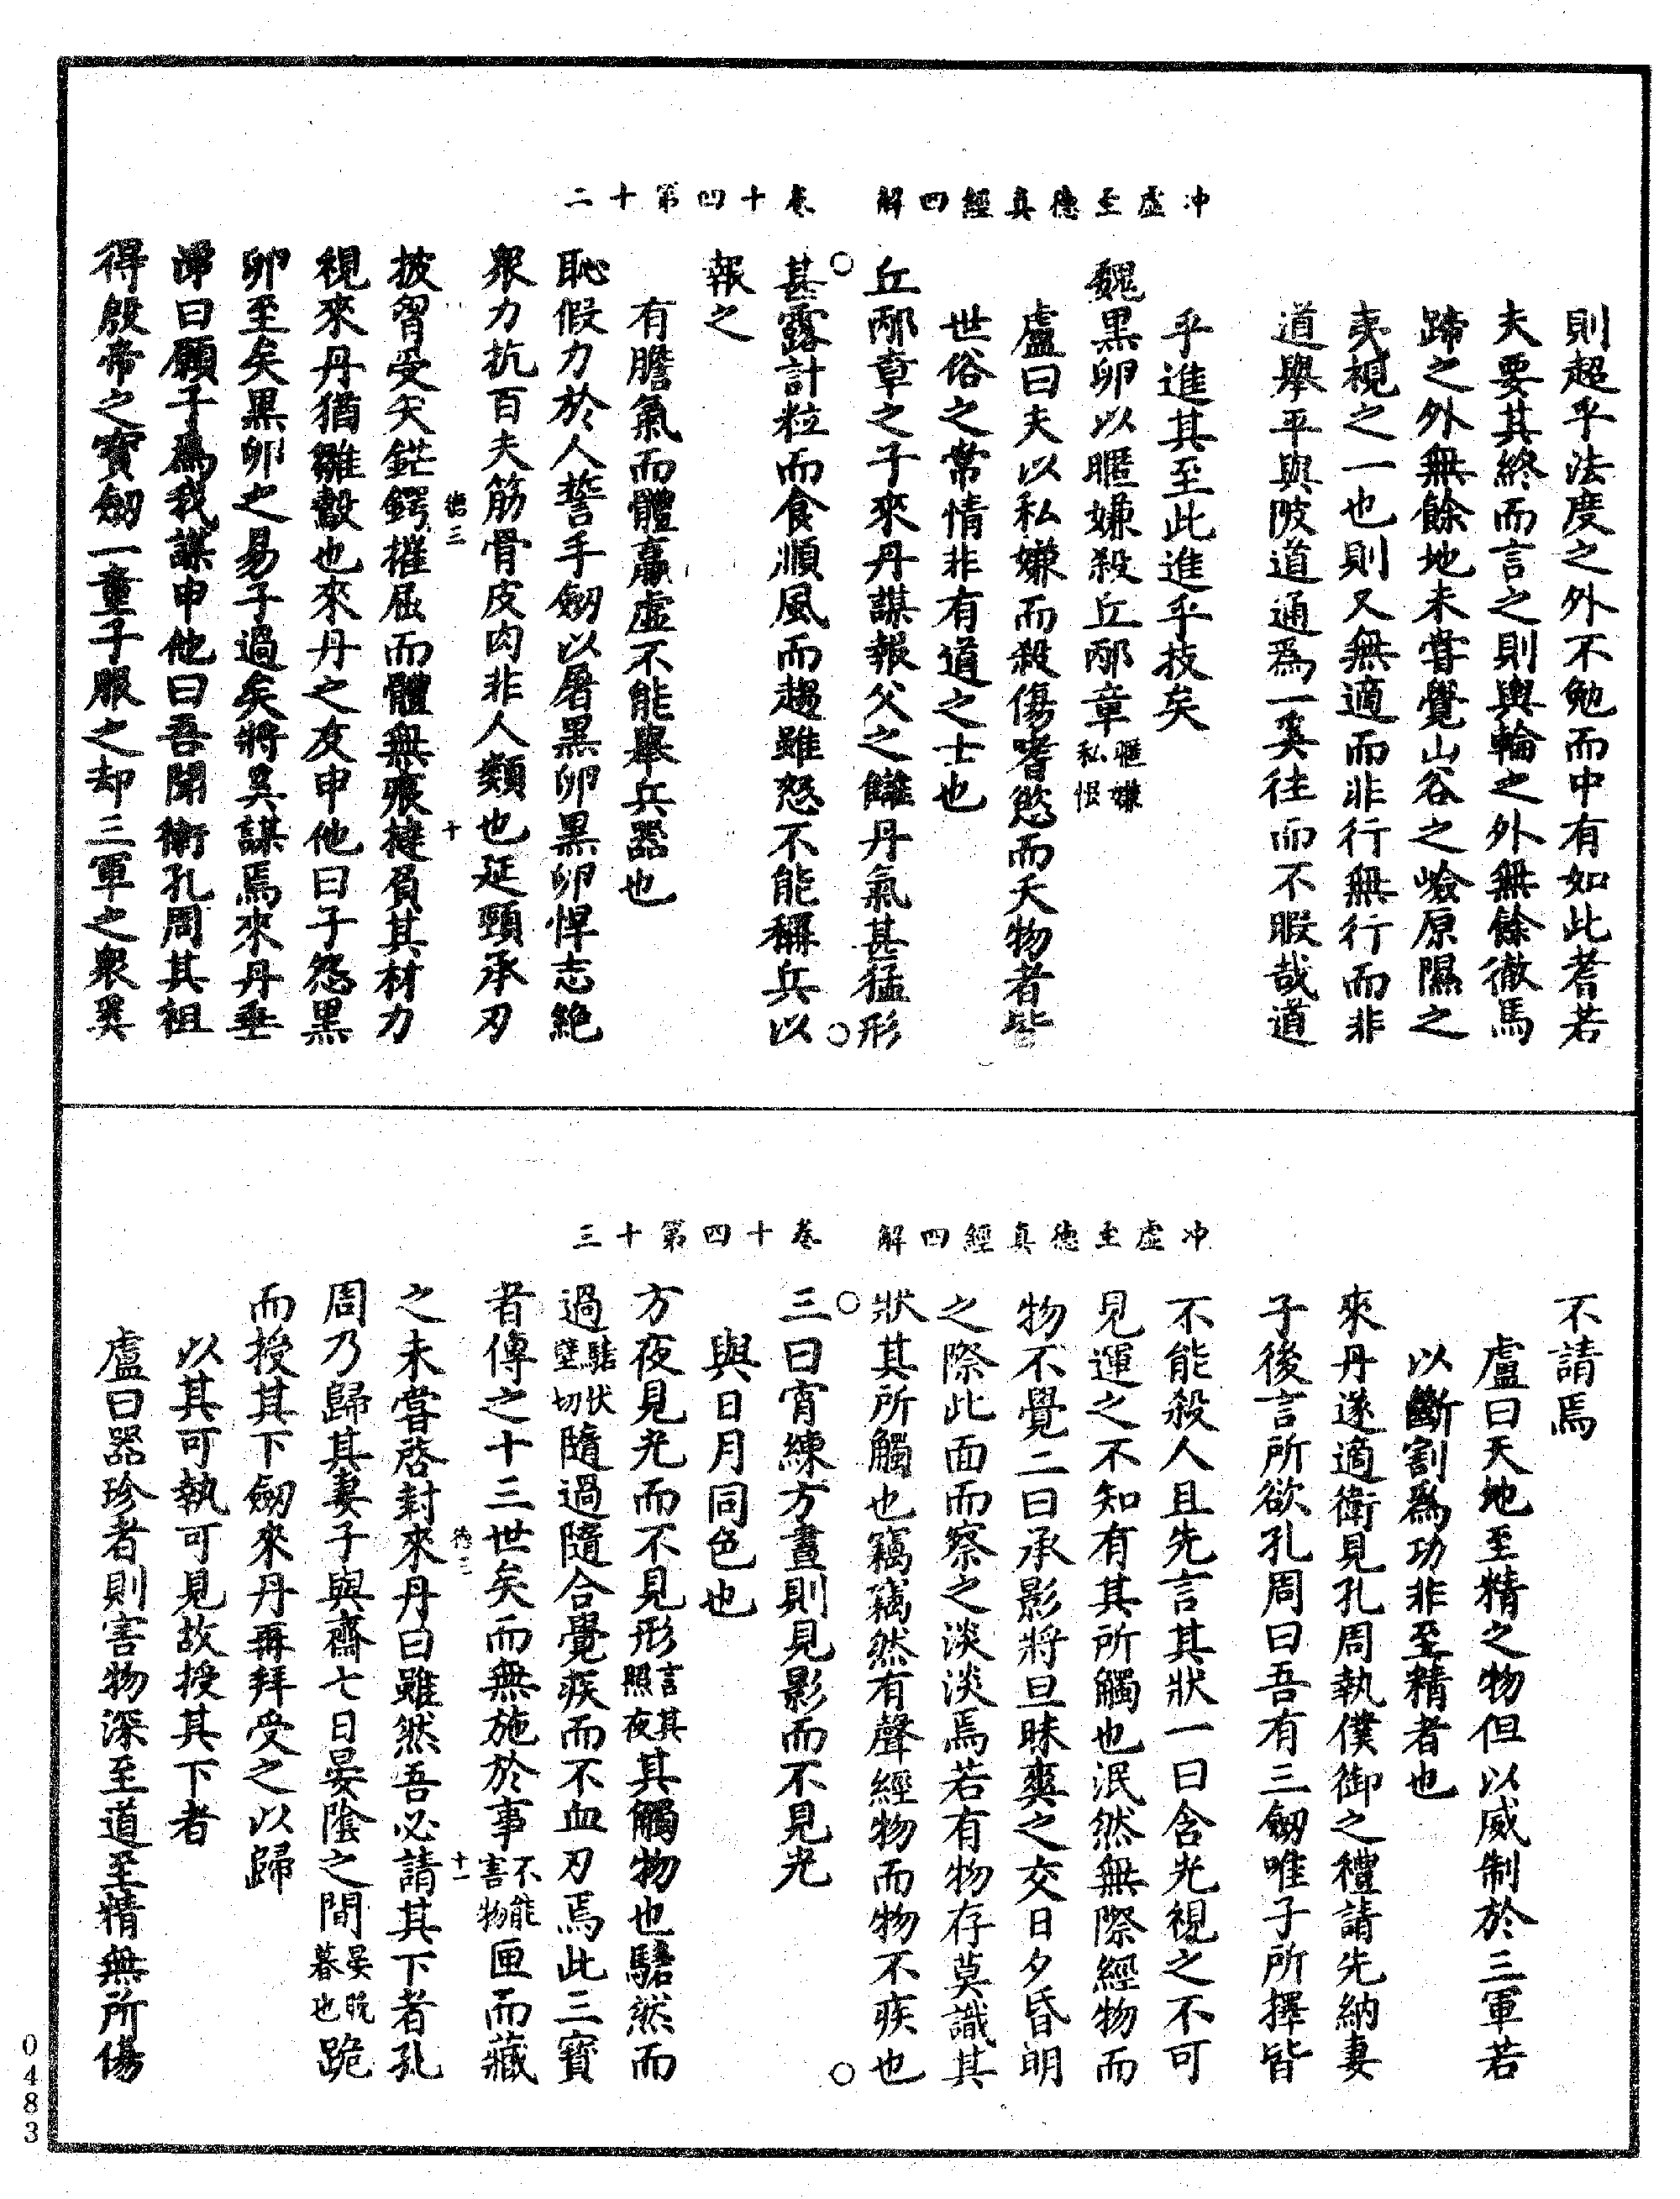 冲虛至德真經四解　卷十四第十二
則超乎法度之外不勉而中有如此者若
夫要其終而言之則輿輪之外無餘徹馬
蹄之外無餘地未嘗覺山谷之嶮原隰之
夷視之一也則又無適而非行無行而非
道舉平與陂道通爲一奚往而不暇哉道
乎進其至此進乎技矣
魏黑卵以暱嫌殺丘邴章暱嫌私恨
盧曰夫以私嫌而殺傷嗜慾而夭物者皆
世俗之常情非有道之士也
丘邴章之子來丹謀報父之讎丹氣甚猛形
甚露計粒而食順風而趨雖怒不能稱兵以
報之
有膽氣而體羸虛不能舉兵器也
恥假力於人誓手劒以屠黑卵黑卵悍志絕
衆力抗百夫筋骨皮肉非人類也延頸承刃
披胷受矢鋩鍔摧屈而體無痕撻負其材力
視來丹猶雛鷇也來丹之友申他曰子怨黑
卵至矣黑卵之易子過矣將奚謀焉來丹垂
涕曰願子爲我謀申他曰吾聞衛孔周其祖
得殷帝之寶劒一童子服之却三軍之衆奚
德三
十
冲虛至德真經四解　卷十四第十三
不請焉
盧曰天地至精之物但以威制於三軍若
以斷割爲功非至精者也
來丹遂適衛見孔周執僕御之禮請先納妻
子後言所欲孔周曰吾有三劒唯子所擇皆
不能殺人且先言其狀一曰含光視之不可
見運之不知有其所觸也泯然無際經物而
物不覺二曰承影將旦昧爽之交日夕昏明
之際北面而察之淡淡焉若有物存莫識其
狀其所觸也竊竊然有聲經物而物不疾也
三曰宵練方晝則見影而不見光
與日月同色也
方夜見光而不見形言其照夜其觸物也騞然而
過騞狀壁切隨過隨合覺疾而不血刃焉此三寶
者傳之十三世矣而無施於事不能害物匣而藏
之未嘗啓封來丹曰雖然吾必請其下者孔
周乃歸其妻子與齋七日晏陰之間晏晩暮也跪
而授其下劒來丹再拜受之以歸
以其可執可見故授其下者
盧曰器珍者則害物深至道至精無所傷
德三
十一
0483